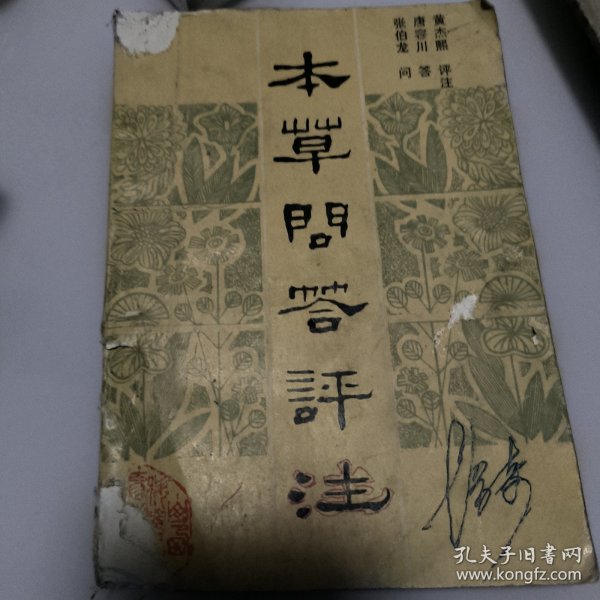 黄杰熙 评注
唐容川 答
张伯龙 问
本草問答評注
孔夫子旧书网
www.kongfz.com